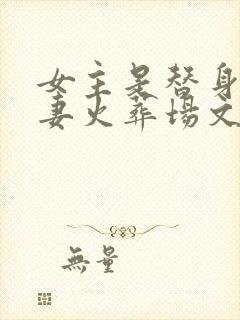 女主是替身
妻火葬场文
無量